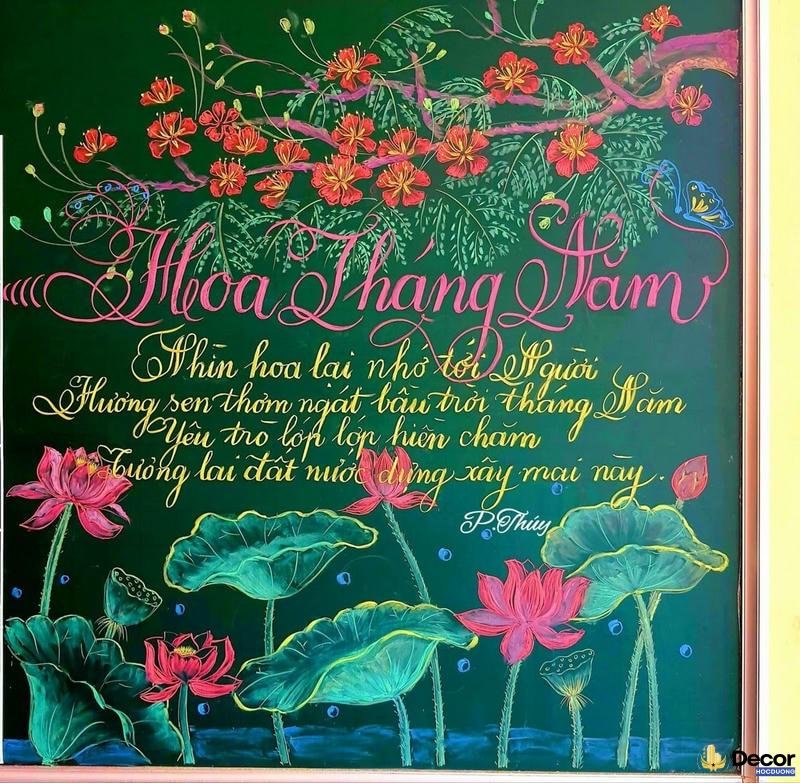 Hoa Tháng Năm
Nhìn hoa lại nhớ tới Người
Hương sen thơm ngát bầu trời tháng Năm
Yêu trò lớp lớp hiền chăm
Tương lai đất nước dựng xây mai này.
P. Thúy
Decor
HOCDUONG